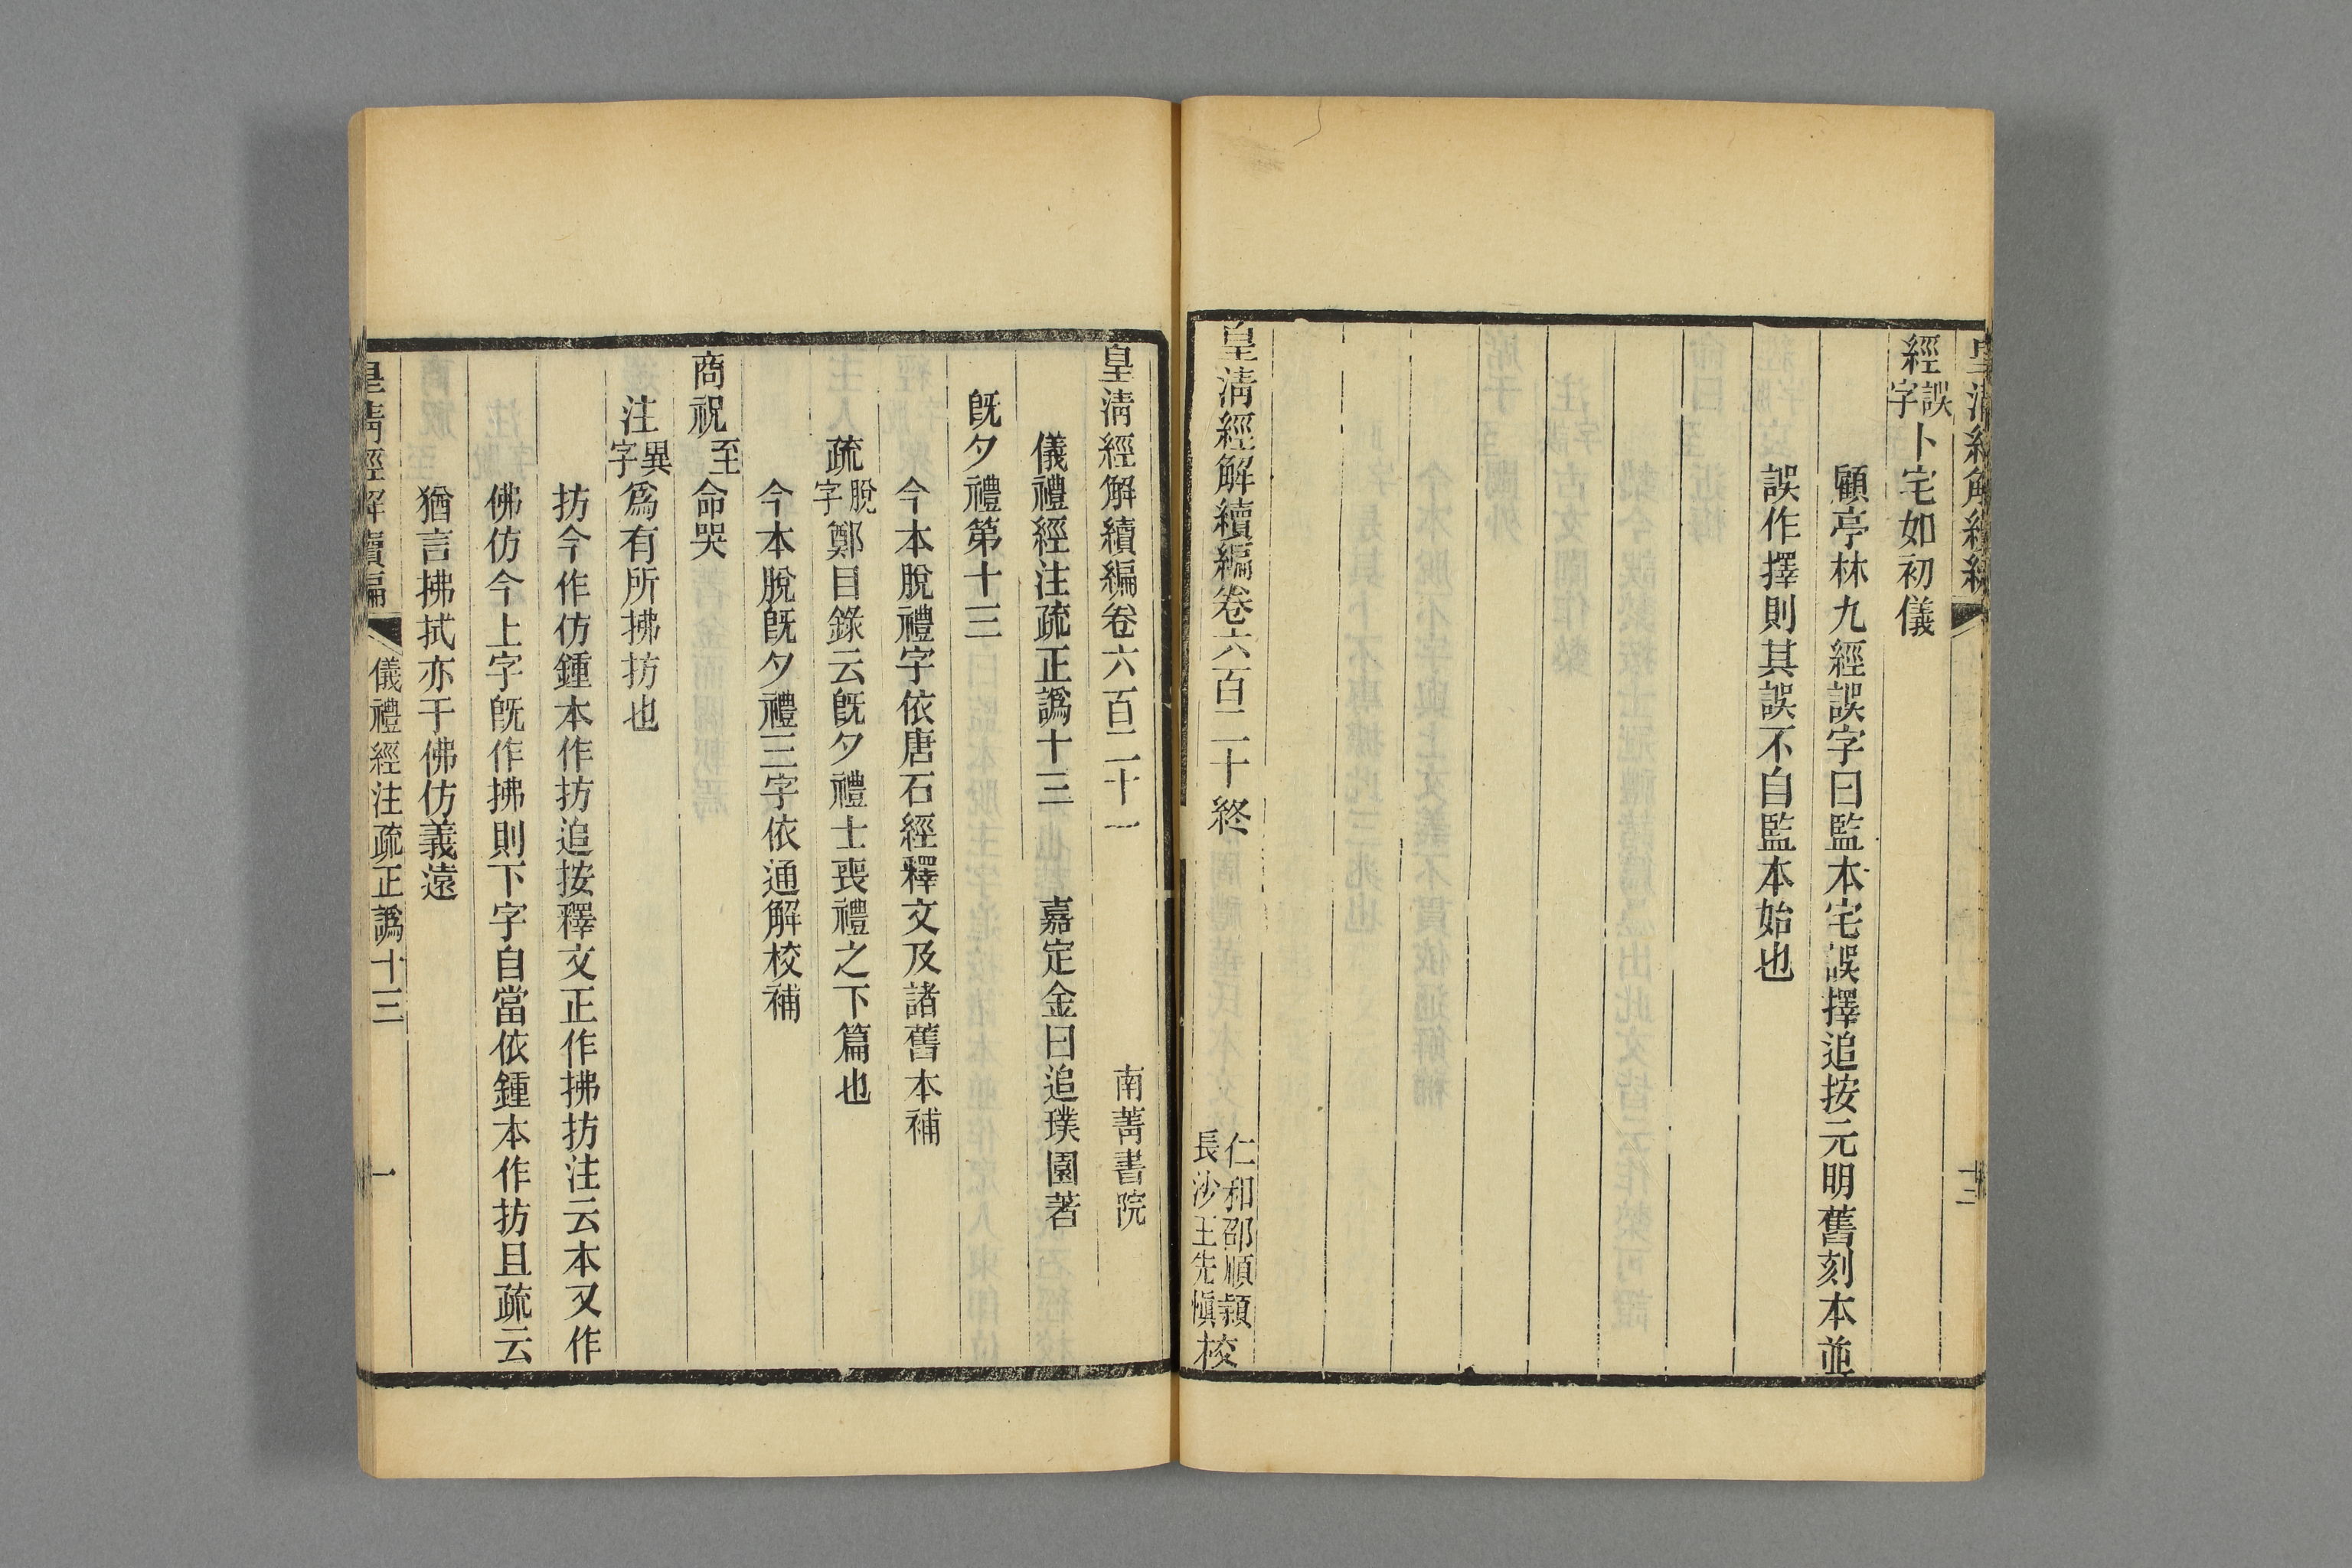 經誤字卜宅如初儀
顧亭林九經誤字曰監本宅誤擇追按元明舊刻本並
誤作擇則其誤不自監本始也
皇清經解續編卷六百二十終
仁和邵順頴
長沙王先愼校
皇清經解續編卷六百二十一
南菁書院
儀禮經注疏正譌十三
嘉定金曰追璞園著
旣夕禮第十三
今本脫禮字依唐石經釋文及諸舊本補
疏脫字鄭目錄云旣夕禮士喪禮之下篇也
今本脫旣夕禮三字依通解校補
商祝至命哭
注異字爲有所拂扐也
扐今作仿鍾本作扐追按釋文正作拂扐注云本又作
佛仿今上字旣作拂則下字自當依鍾本作扐且疏云
猶言拂拭亦于佛仿義遠
皇清經解續編
儀禮經注疏正譌十三
一